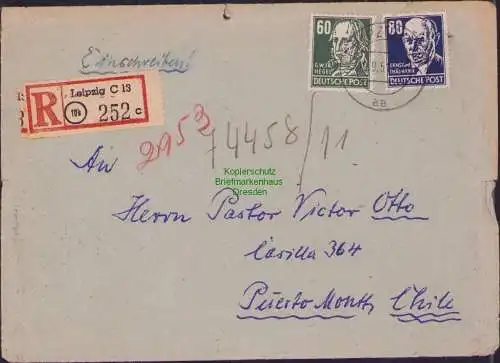 Einschreiben!
60
G.W.FR. HEGEL
DEUTSCHE POST
80
ERNST THÄLMANN
DEUTSCHE POST
aa
R Leipzig C 13
252 c
2953
74458/11
An
Kopierschutz
Briefmarkenhaus
Dresden
Herrn Pastor Victor Otto
Casilla 364
Puerto Montt, Chile